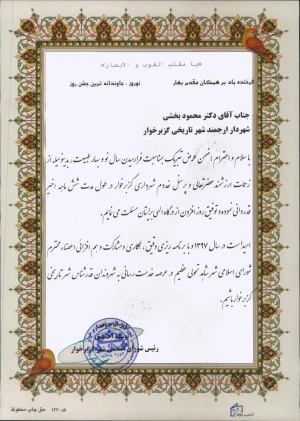 «یا مقلب القلوب و الابصار»
فرخنده باد بر همگان مقدم بهار
نوروز ، جاودانه ترین جشن روز
جناب آقای دکتر محمود بخشی
شهردار ارجمند شهر تاریخی گزبرخوار
با سلام و احترام؛ ضمن عرض تبریک بمناسبت فرارسیدن سال نو و بهار طبیعت، بدینوسیله از
زحمات ارزشمند حضرتعالی و پرسنل خدوم شهرداری گزبرخوار در طول مدت شش ماهه اخیر
قدردانی نموده و توفیق روز افزون از درگاه الهی برایتان مسئلت می نمایم.
امید است در سال ۱۳۹۷ و با برنامه ریزی دقیق، همکاری و مشارکت و هم افزائی اعضاء محترم
شورای اسلامی شهر شاهد تحولی عظیم در عرصه خدمت رسانی به شهروندان قدرشناس شهر تاریخی
گزبرخوار باشیم.
رئیس شورای اسلامی شهر گزبرخوار
کد ۱۲۲۰ حق چاپ محفوظ